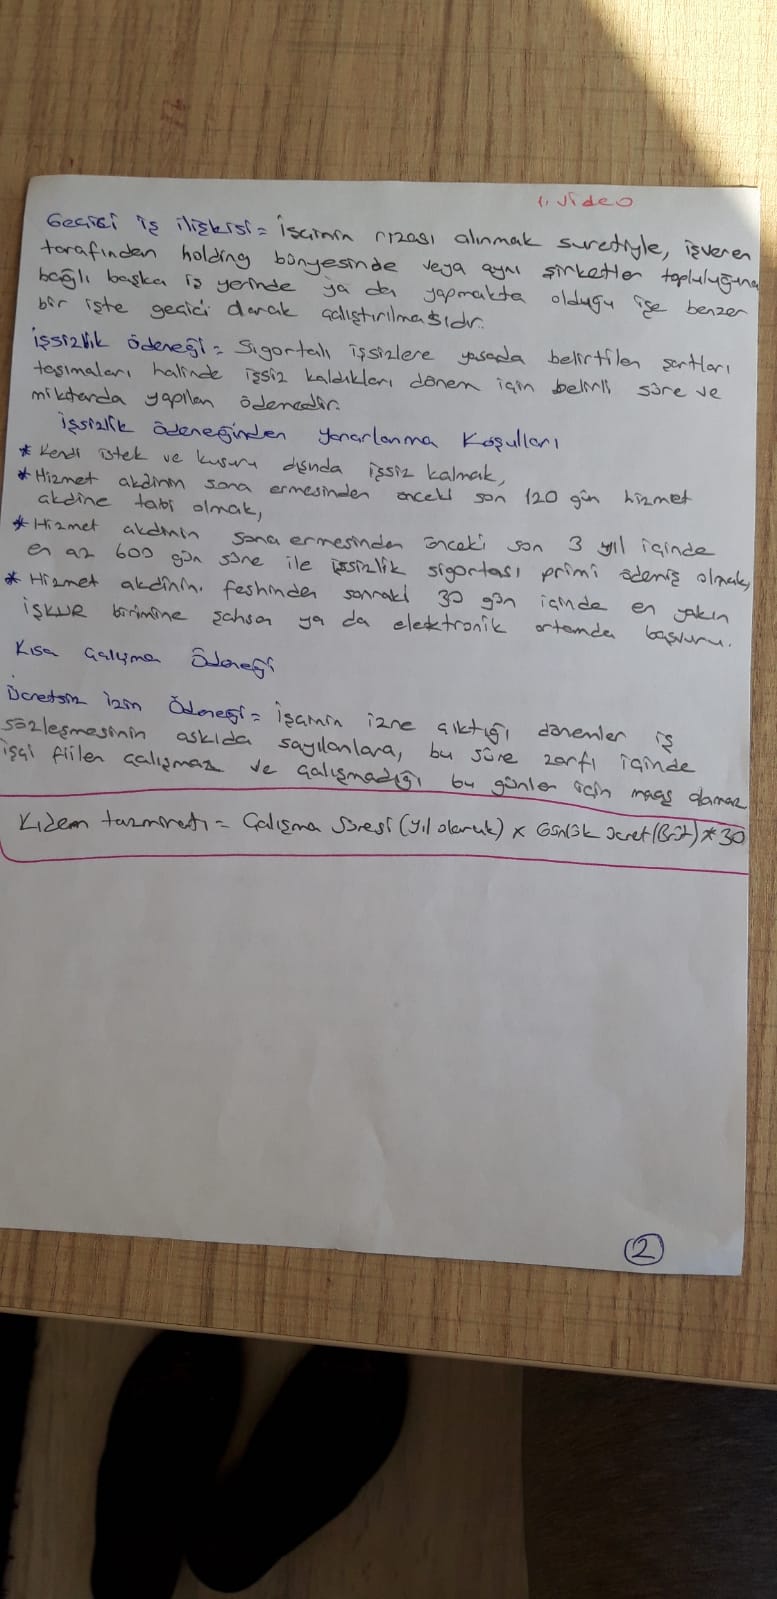 1. video
Geçici iş ilişkisi = İşçinin rızası alınmak suretiyle, işveren
tarafından holding bünyesinde veya aynı şirketler topluluğuna
bağlı başka iş yerinde ya da yapmakta olduğu işe benzer
bir işte geçici olarak çalıştırılmasıdır.
İşsizlik ödeneği = Sigortalı işsizlere yasada belirtilen şartları
taşımaları halinde işsiz kaldıkları dönem için belirli süre ve
miktarda yapılan ödemedir.
İşsizlik ödeneğinden yararlanma Koşulları
* Kendi istek ve kusuru dışında işsiz kalmak,
* Hizmet akdinin sona ermesinden önceki son 120 gün hizmet
akdine tabi olmak,
* Hizmet akdinin sona ermesinden önceki son 3 yıl içinde
en az 600 gün süre ile işsizlik sigortası primi ödemiş olmak,
* Hizmet akdinin. feshinden sonraki 30 gün içinde en yakın
İŞKUR birimine şahsen ya da elektronik ortamda başvuru.
Kısa Çalışma Ödeneği
Ücretsiz İzin Ödeneği = İşçinin izne çıktığı dönemler iş
sözleşmesinin askıda sayılanlara, bu süre zarfı içinde
işçi fiilen çalışmaz ve çalışmadığı bu günler için maaş alamaz
Kıdem tazminatı = Çalışma Süresi (yıl olarak) x Günlük ücret (Brüt) * 30
2